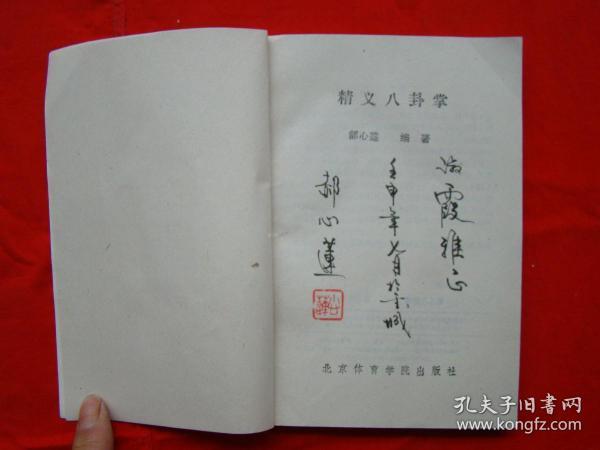 精义八卦掌
郝心莲 编著
霞雅正
壬申年七月於金城
郝心莲
北京体育学院出版社
孔夫子旧书网
www.kongfz.com